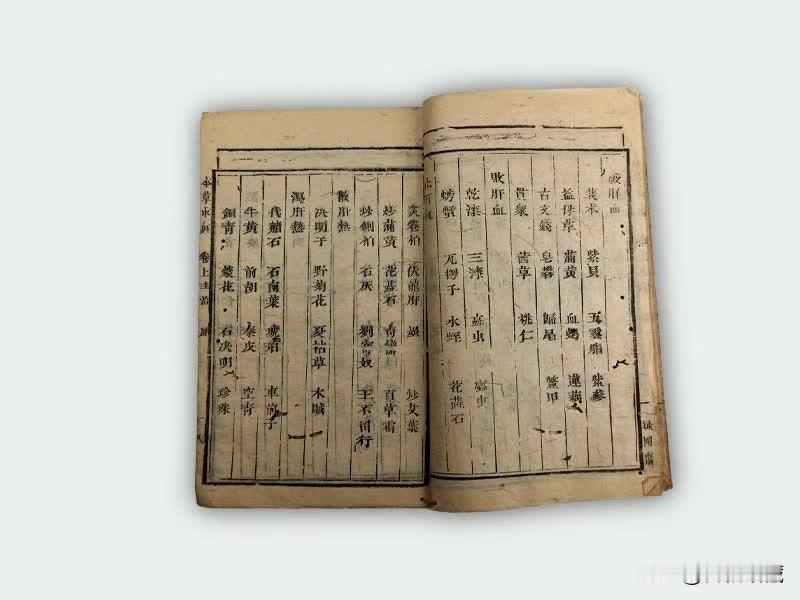 破肝血
莪朮 紫貝 五靈脂 紫參
益母草 蒲黃 血蝎 蓮藕
古文錢 皂礬 歸尾 鱉甲
貫衆 茜草 桃仁
敗肝血
乾漆 三漆 虫 虫
螃蟹 瓦楞子 水蛭 花蕊石
止肝血
炙卷柏 伏龍肝 墨 炒艾葉
炒蒲黃 花蕊石 青 百草霜
炒側柏 石灰 劉寄奴 王不留行
散肝熱
決明子 野菊花 夏枯草 木賊
瀉肝熱
代赭石 石南葉 琥珀 車前子
牛黃 前胡 秦皮 空青
銅青 蒙花 石決明 珍珠
本草求真 卷上 主治 八